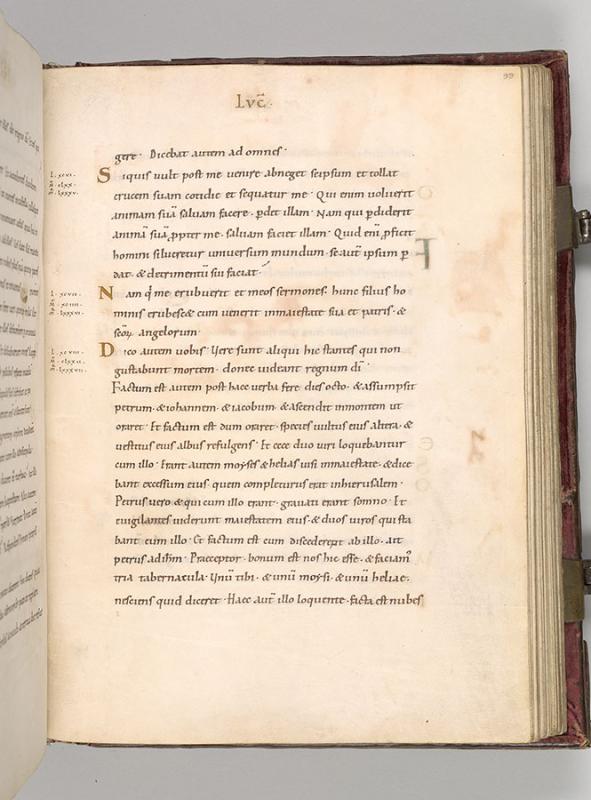 99
Lvc̄.
gere· Dicebat autem ad omnes·
L·xcvi·
Siquis uult post me uenire abneget seipsum et tollat
crucem suam cotidie et sequatur me· Qui enim uoluerit
animam suā saluam facere· pdet illam· Nam qui pdiderit
animā suā ppter me· saluam faciet illam· Quid enī pficit
homini si lucretur uniuersum mundum· se aut̄ ipsum p
dat· & detrimentū sui faciat·
L·xcvii·
Nam q̇ me erubuerit et meos sermones· hunc filius ho
minis erubesc& cum uenerit inmaiestate sua et patris· &
scōꝝ angelorum·
L·xcviii·
Dico autem uobis· Uere sunt aliqui hic stantes qui non
gustabunt mortem· donec uideant regnum dī·
Factum est autem post haec uerba fere dies octo· & assumpsit
petrum· & iohannem· & iacobum· & ascendit inmontem ut
oraret· Et factum est dum oraret· species uultus eius altera· &
uestitus eius albus refulgens· Et ecce duo uiri loquebantur
cum illo· Erant autem moyses & helias uisi inmaiestate· & dice
bant excessum eius· quem completurus erat inhierusalem·
Petrus uero & qui cum illo erant· grauati erant somno· Et
euigilantes uiderunt maiestatem eius· & duos uiros qui sta
bant cum illo· Et factum est cum discederent ab illo· ait
petrus ad ihm̄· Praeceptor· bonum est nos hic esse· & faciam̄
tria tabernacula· Unū tibi· & unū moysi· & unū heliae·
nesciens quid diceret· Haec aut̄ illo loquente· facta est nubes